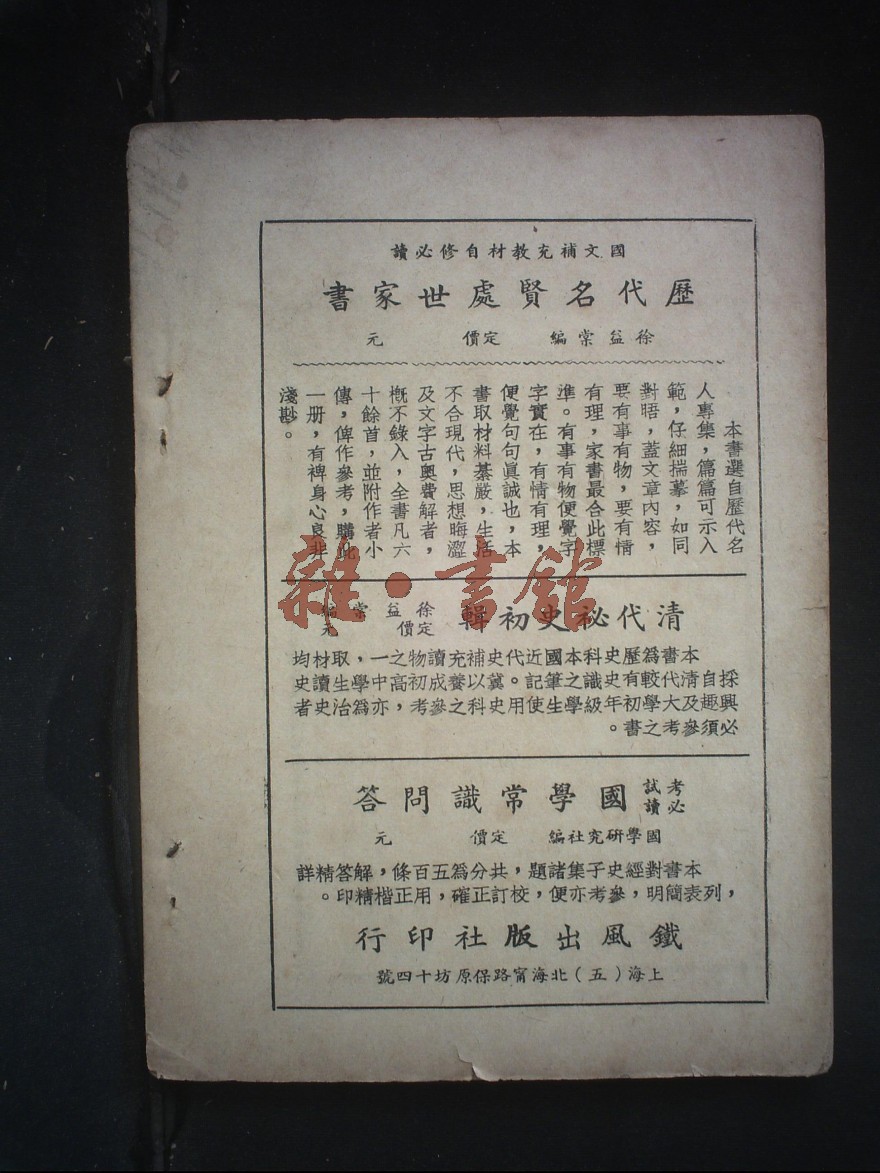 國文補充教材自修必讀
歷代名賢處世家書
徐益棠編　定價　元
本書選自歷代名
人專集，篇篇可示入
範，仔細揣摹，如同
對晤，蓋文章內容，
要有事有物，要有情
有理，家書最合此標
準。有事有物便覺字
字實在，有情有理，
便覺句句眞誠也，本
書取材料綦嚴，生活
不合現代，思想晦澀
及文字古奧費解者，
槪不錄入，全書凡六
十餘首，並附作者小
傳，俾作參考，購此
一册，有裨身心良非
淺尠。
清代祕史初輯　徐益棠編
定價　元
本書爲歷史科本國近代史補充讀物之一，取材均
採自清代較有史識之筆記。冀以養成初高中學生讀史
興趣及大學初年級學生使用史科之參考，亦爲治史者
必須參考之書。
考試必讀　國學常識問答
國學研究社編　定價　元
本書對經史子集諸題，共分爲五百條，解答精詳
，列表簡明，參考亦便，校訂正確，用正楷精印。
鐵風出版社印行
上海（五）北海甯路保原坊十四號
雜·書館